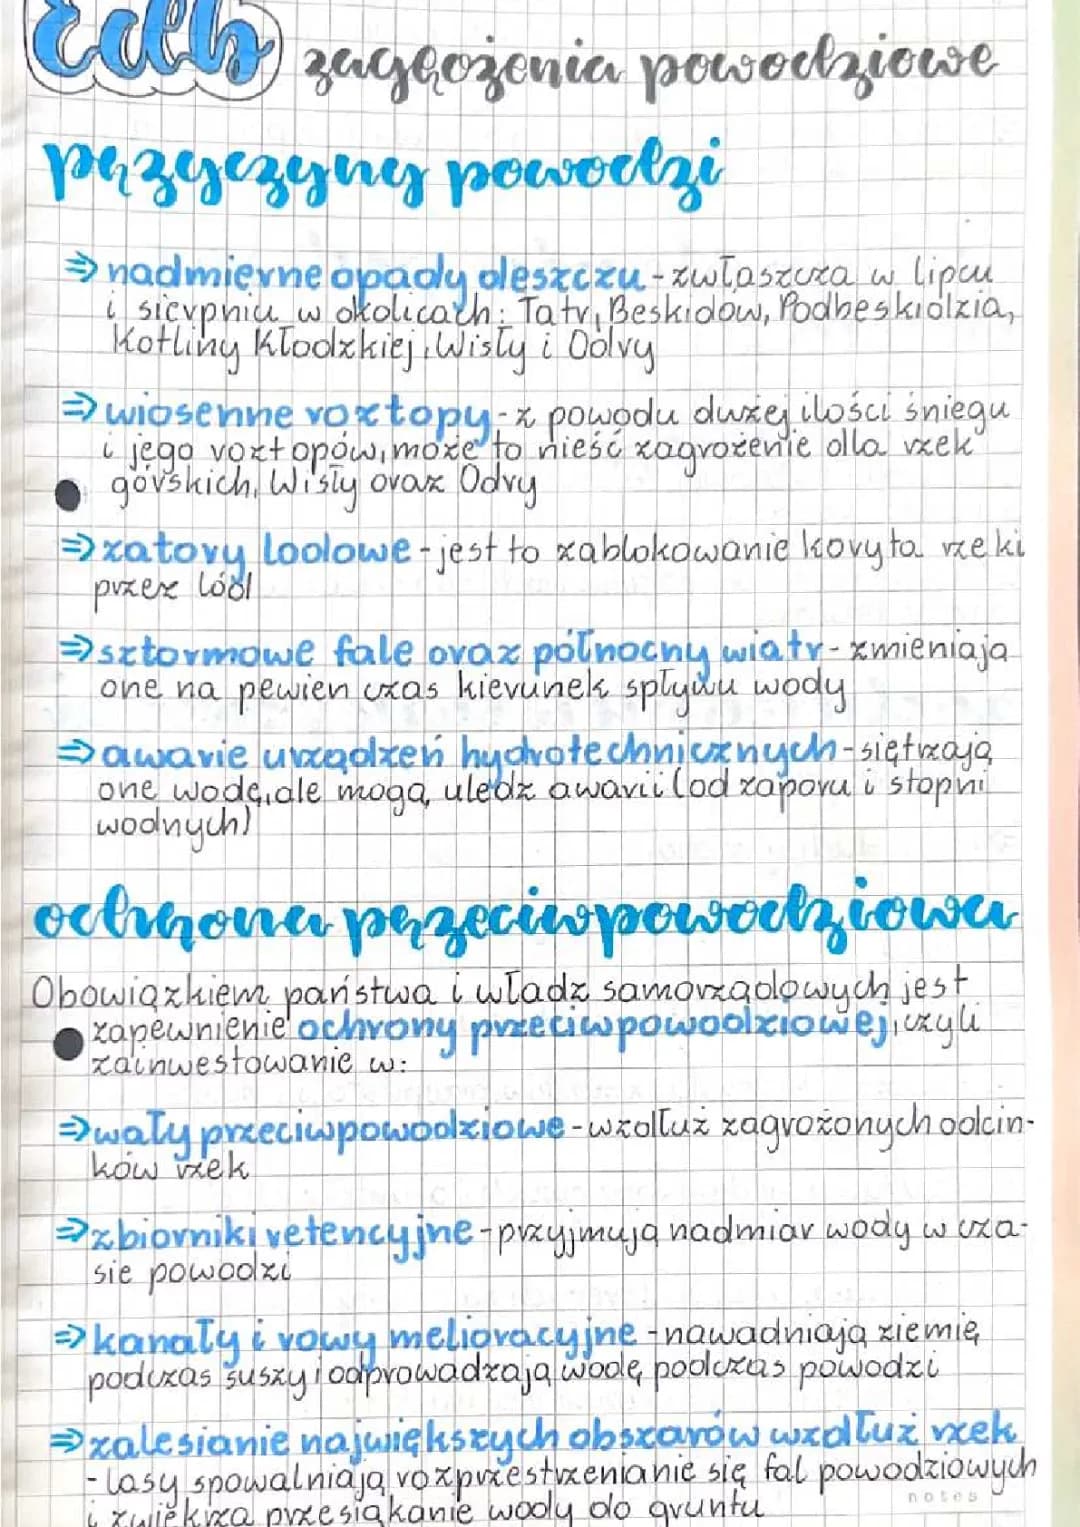 Edb zagrożenia powodziowe
przyczyny powodzi
⇒ nadmierne opady deszczu - zwłaszcza w lipcu
i sierpniu w okolicach: Tatr, Beskidów, Podbeskidzia,
Kotliny Kłodzkiej, Wisły i Odry
⇒ wiosenne roztopy - z powodu dużej ilości śniegu
i jego roztopów, może to nieść zagrożenie dla rzek
górskich, Wisły oraz Odry
⇒ zatory lodowe - jest to zablokowanie koryta rzeki
przez lód
⇒ sztormowe fale oraz północny wiatr - zmieniają
one na pewien czas kierunek spływu wody
⇒ awarie urządzeń hydrotechnicznych - siętrzają
one wodę, ale mogą uledz awarii (od zaporu i stopni
wodnych)
ochrona przeciwpowodziowa
Obowiązkiem państwa i władz samorządowych jest
zapewnienie ochrony przeciwpowodziowej, czyli
zainwestowanie w:
⇒ wały przeciwpowodziowe - wzdłuż zagrożonych odcin-
ków rzek
⇒ zbiorniki retencyjne - przyjmują nadmiar wody w cza-
sie powodzi
⇒ kanały i rowy melioracyjne - nawadniają ziemię
podczas suszy i odprowadzają wodę podczas powodzi
⇒ zalesianie największych obszarów wzdłuż rzek
- lasy spowalniają rozprzestrzenianie się fal powodziowych
i zwiększa przesiąkanie wody do gruntu
notes